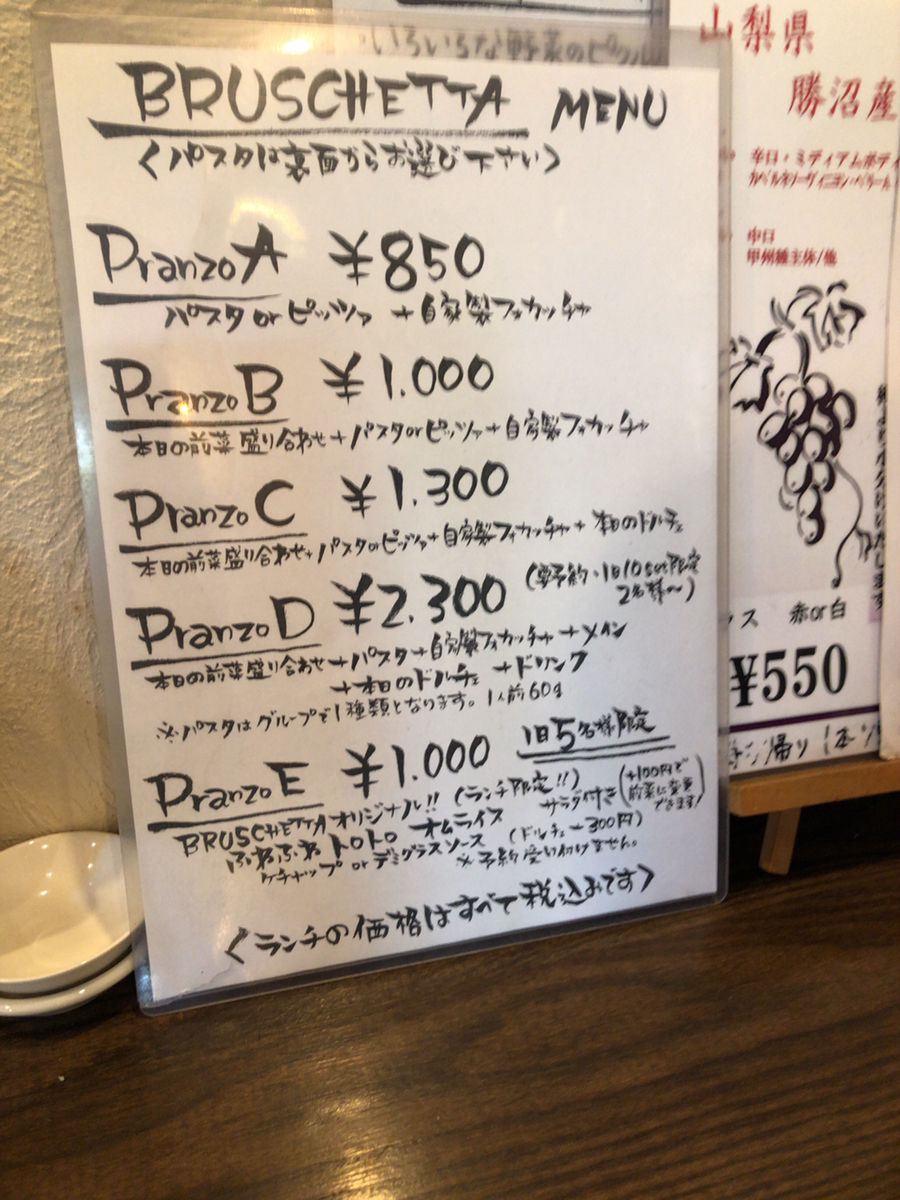 BRUSCHETTA MENU
〈パスタは裏面からお選び下さい〉
Pranzo A ¥850
パスタ or ピッツァ + 自家製フォカッチャ
Pranzo B ¥1.000
本日の前菜盛り合わせ + パスタ or ピッツァ + 自家製フォカッチャ
Pranzo C ¥1.300
本日の前菜盛り合わせ + パスタ or ピッツァ + 自家製フォカッチャ + 本日のドルチェ
Pranzo D ¥2.300 (要予約・1日10set限定
2名様〜)
本日の前菜盛り合わせ + パスタ + 自家製フォカッチャ + メイン
+ 本日のドルチェ + ドリンク
※パスタはグループで1種類となります。1人前60g
Pranzo E ¥1.000 1日5名様限定
BRUSCHETTAオリジナル!! (ランチ限定!!) サラダ付き (+100円で
前菜に変更
できます!)
ふわふわトロトロ オムライス
ケチャップ or デミグラスソース (ドルチェ-300円)
※予約受け付けません。
〈ランチの価格はすべて税込みです〉
いろいろな野菜のピクル
山梨県
勝沼産
辛口・ミディアムボディ
カベルネソーヴィニヨン・ベリーA
中口
甲州種主体/他
赤or白
¥550